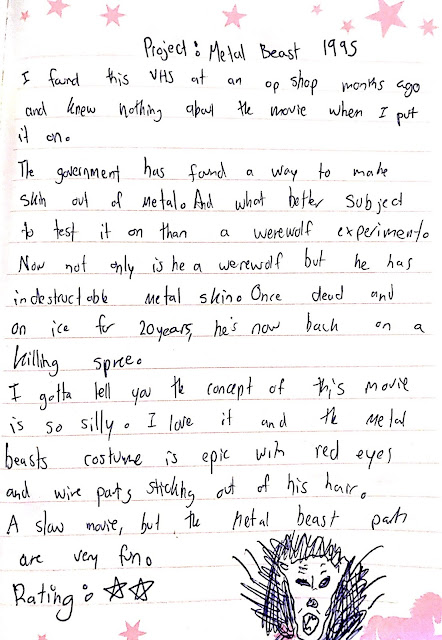 Project: Metal Beast 1995
I found this VHS at an op shop months ago
and knew nothing about the movie when I put
it on.
The government has found a way to make
skin out of metal. And what better subject
to test it on than a werewolf experiment.
Now not only is he a werewolf but he has
indestructable metal skin. Once dead and
on ice for 20 years, he's now back on a
killing spree.
I gotta tell you the concept of this movie
is so silly. I love it and the metal
beasts costume is epic with red eyes
and wire parts sticking out of his hair.
A slow movie, but the metal beast parts
are very fun.
Rating: ☆☆